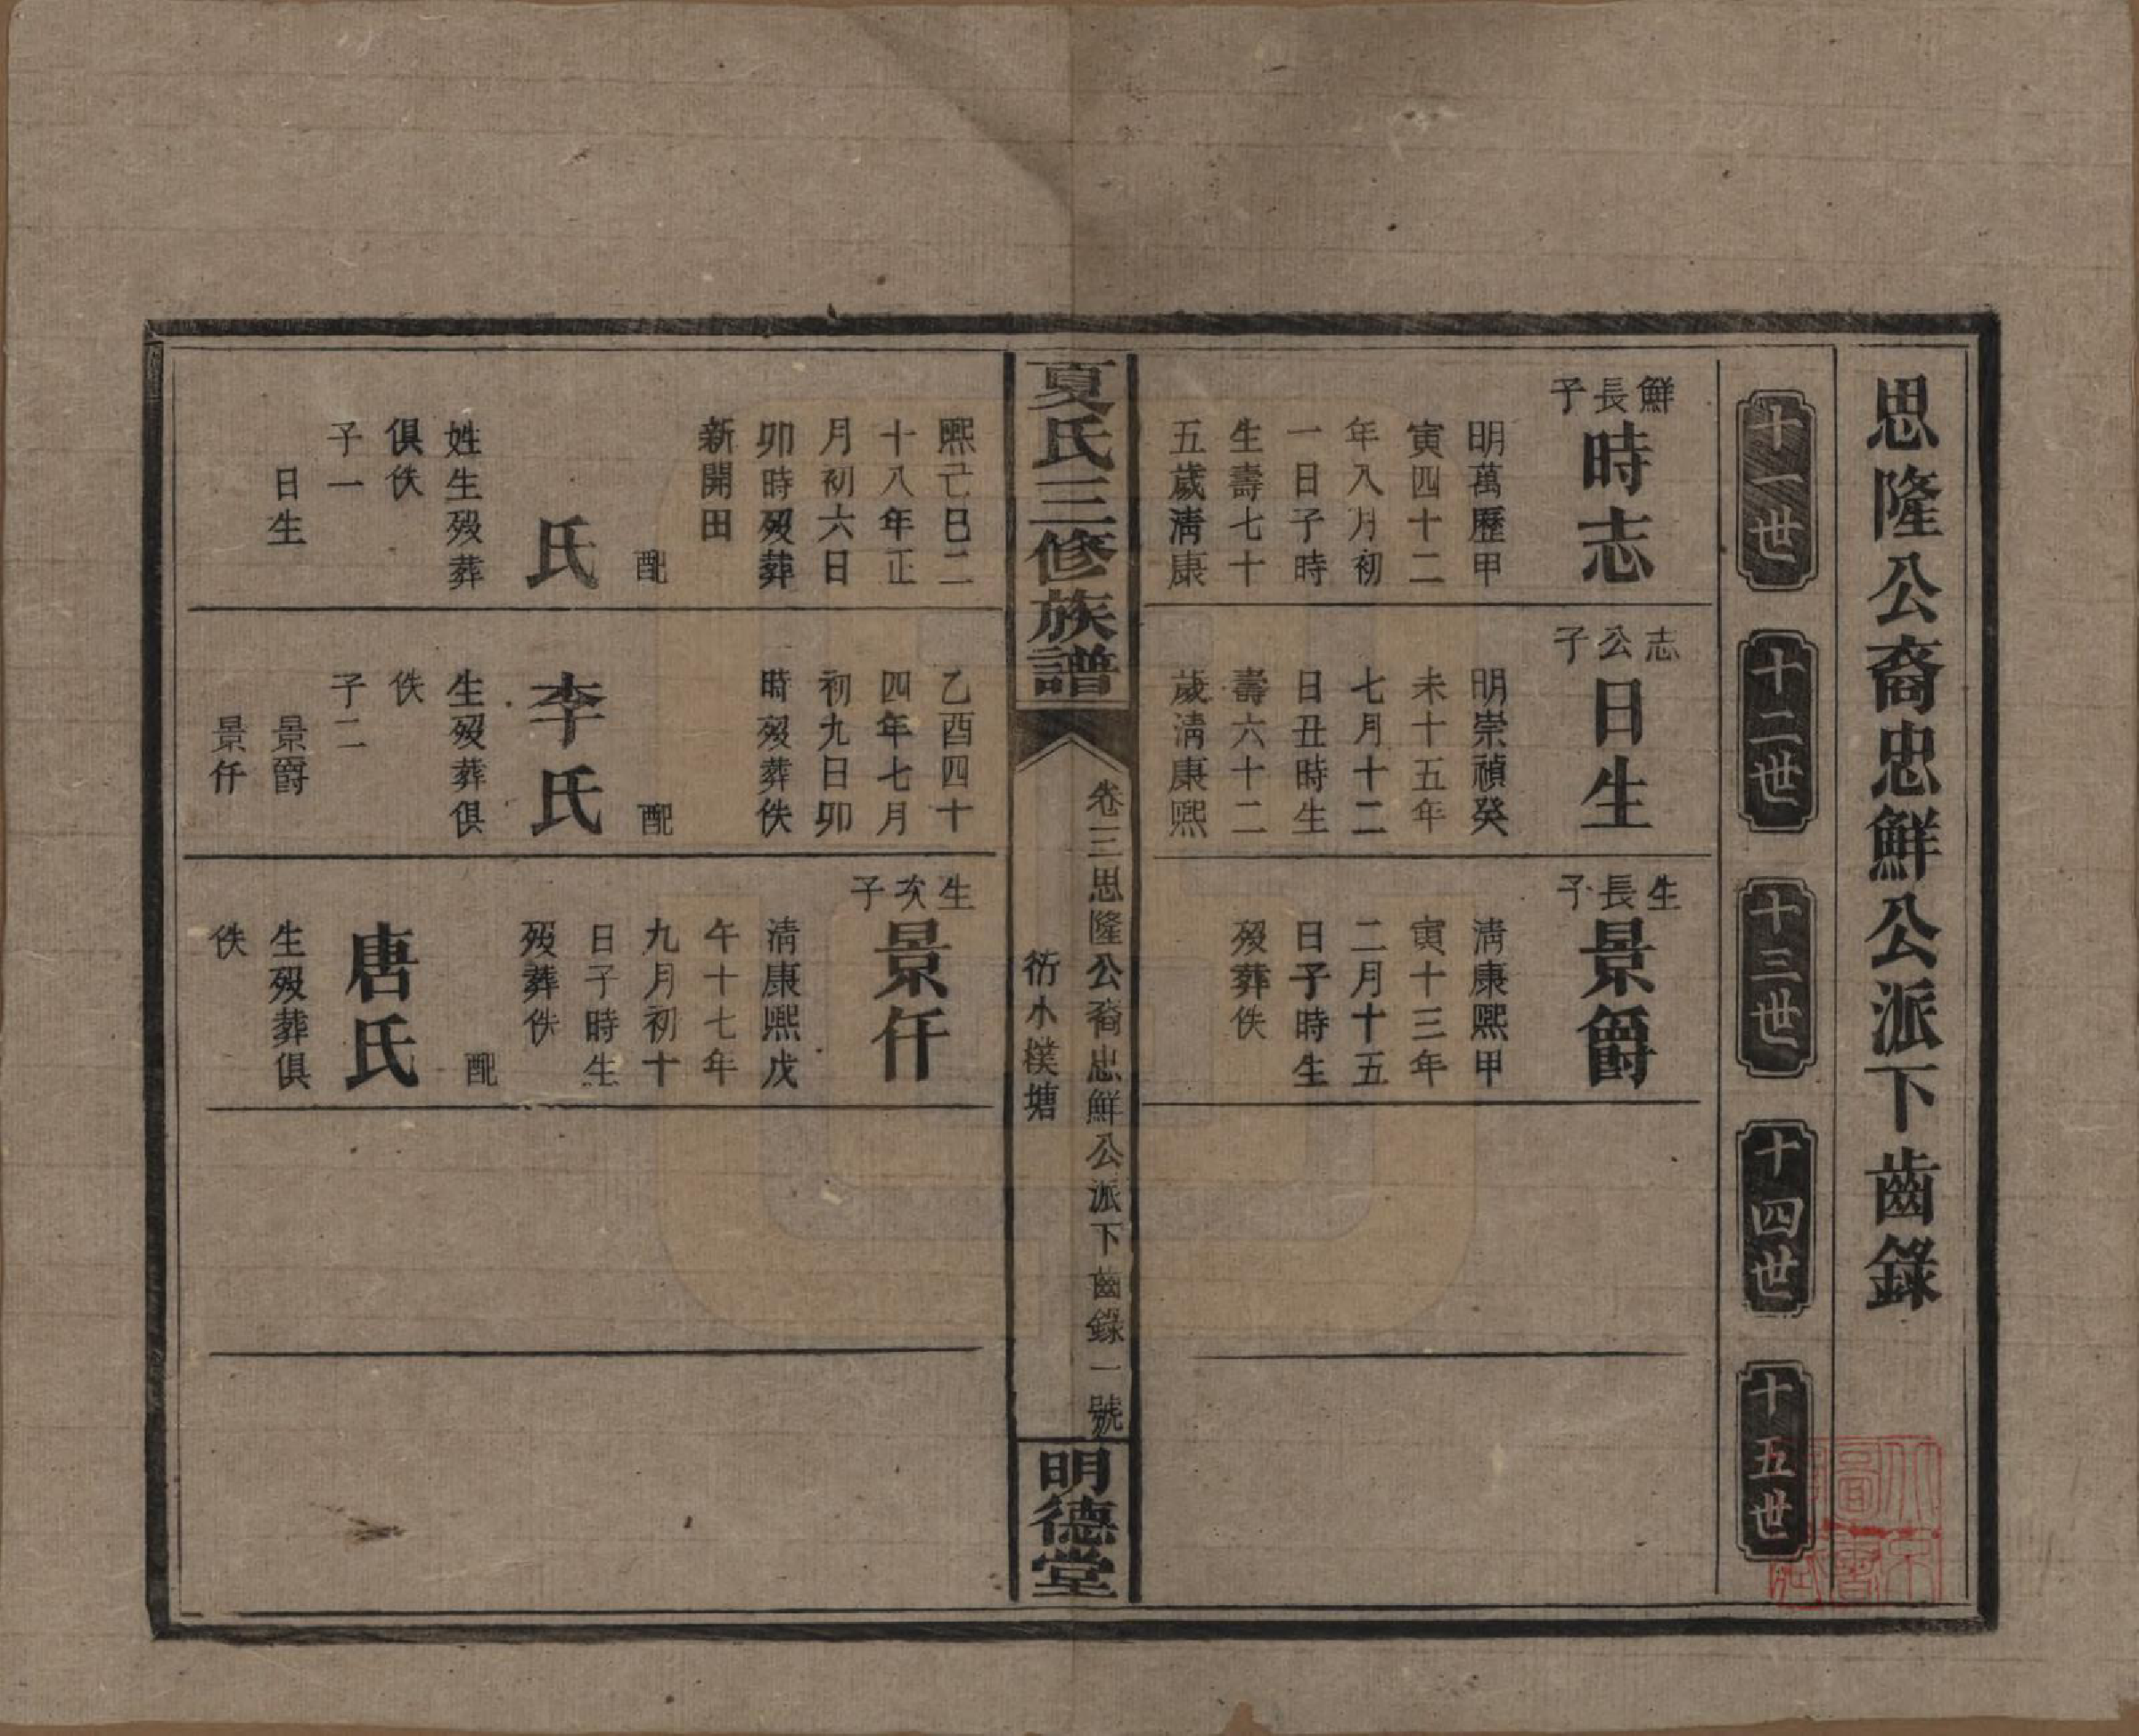 思隆公裔忠鮮公派下齒錄
十一世
十二世
十三世
十四世
十五世
鮮長子
時志
明萬歷甲
寅四十二
年八月初
一日子時
生壽七十
五歲淸康
熙己巳二
十八年正
月初六日
卯時殁葬
新開田
配
氏
姓生殁葬
俱佚
子一
日生
志公子
日生
明崇禎癸
未十五年
七月十二
日丑時生
壽六十二
歲淸康熙
乙酉四十
四年七月
初九日卯
時殁葬佚
配
李氏
生殁葬俱
佚
子二
景爵
景仟
生長子
景爵
淸康熙甲
寅十三年
二月十五
日子時生
殁葬佚
生次子
景仟
淸康熙戊
午十七年
九月初十
日子時生
殁葬佚
配
唐氏
生殁葬俱
佚
夏氏三修族譜
卷三思隆公裔忠鮮公派下齒錄一號
衍水樸塘
明德堂